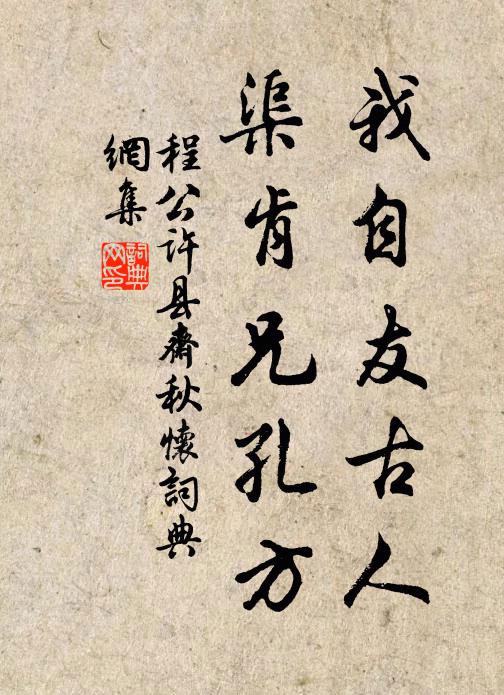 我自友古人
渠肯兄孔方
程公许县斋秋怀词典
網集
詞典
网印